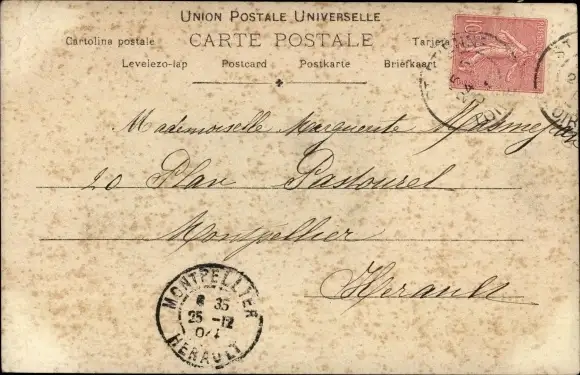 UNION POSTALE UNIVERSELLE
Cartolina postale CARTE POSTALE Tarjeta
Levelezo-lap Postcard Postkarte Briefkaart
10
Mademoiselle Marguerite
20 Plan Pastourel
Montpellier
Herault
MONTPELLIER
6 35
25 -12
04
HERAULT